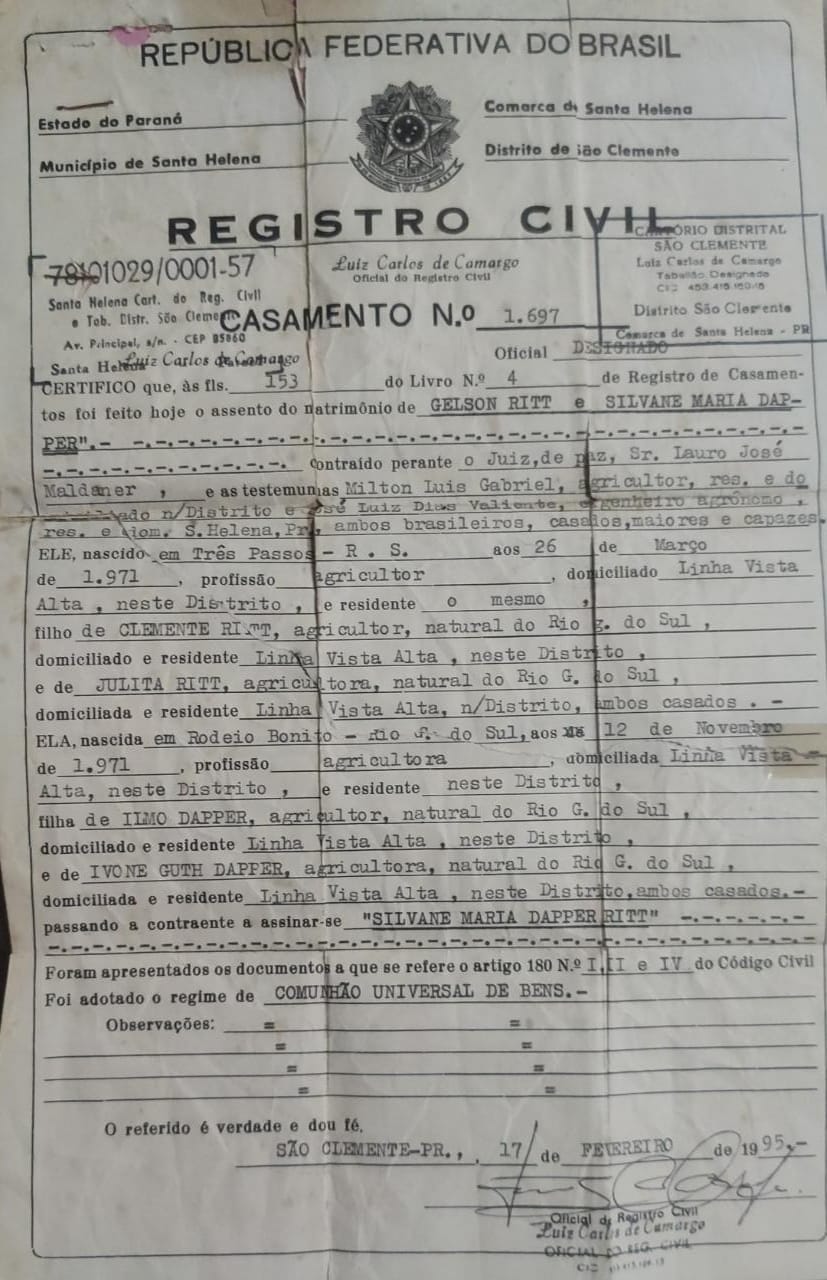 REPÚBLICA FEDERATIVA DO BRASIL
Estado do Paraná
Comarca de Santa Helena
Município de Santa Helena
Distrito de São Clemente
REGISTRO CIVIL
CARTÓRIO DISTRITAL
SÃO CLEMENTE
Luiz Carlos de Camargo
Tabelião Designado
Distrito São Clemente
Comarca de Santa Helena - PR
01029/0001-57
Santa Helena Cart. do Reg. Civil
e Tab. Distr. São Clemente
Av. Principal, s/n. - CEP 85860
Santa Helena
Luiz Carlos de Camargo
Oficial do Registro Civil
CASAMENTO N.º 1.697
Luiz Carlos de Camargo
Oficial DESIGNADO
CERTIFICO que, às fls. 153 do Livro N.º 4 de Registro de Casamen-
tos foi feito hoje o assento do matrimônio de GELSON RITT e SILVANE MARIA DAP-
PER".- -.-.-.-.-.-.-.-.-.-.-.-.-.-.-.-.-.-.-.-
-.-.-.-.-.-.-.-.-. contraído perante o Juiz,de paz, Sr. Lauro José
Maldaner , e as testemunhas Milton Luis Gabriel, agricultor, res. e do
miciliado n/Distrito e José Luiz Dias Valiente, engenheiro agrônomo ,
res. e dom. S.Helena,Pr, ambos brasileiros, casados,maiores e capazes.
ELE, nascido em Três Passos - R . S. aos 26 de Março
de 1.971 , profissão agricultor , domiciliado Linha Vista
Alta , neste Distrito , e residente o mesmo ,
filho de CLEMENTE RITT, agricultor, natural do Rio G. do Sul ,
domiciliado e residente Linha Vista Alta , neste Distrito ,
e de JULITA RITT, agricultora, natural do Rio G. do Sul ,
domiciliada e residente Linha Vista Alta, n/Distrito, ambos casados . -
ELA, nascida em Rodeio Bonito - Rio G. do Sul, aos 12 de Novembro
de 1.971 , profissão agricultora , domiciliada Linha Vista -
Alta, neste Distrito , e residente neste Distrito ,
filha de ILMO DAPPER, agricultor, natural do Rio G. do Sul ,
domiciliado e residente Linha Vista Alta , neste Distrito ,
e de IVONE GUTH DAPPER, agricultora, natural do Rio G. do Sul ,
domiciliada e residente Linha Vista Alta , neste Distrito,ambos casados.-
passando a contraente a assinar-se "SILVANE MARIA DAPPER RITT" -.-.-.-.-.-
-.-.-.-.-.-.-.-.-.-.-.-.-.-.-.-.-.-.-.-.-.-.-.-
Foram apresentados os documentos a que se refere o artigo 180 N.º I,II e IV do Código Civil
Foi adotado o regime de COMUNHÃO UNIVERSAL DE BENS.-
Observações: = =
= =
= =
= =
O referido é verdade e dou fé.
SÃO CLEMENTE-PR., 17/ de FEVEREIRO de 1995,-
Oficial do Registro Civil
Luiz Carlos de Camargo
OFICIAL DO REG. CIVIL